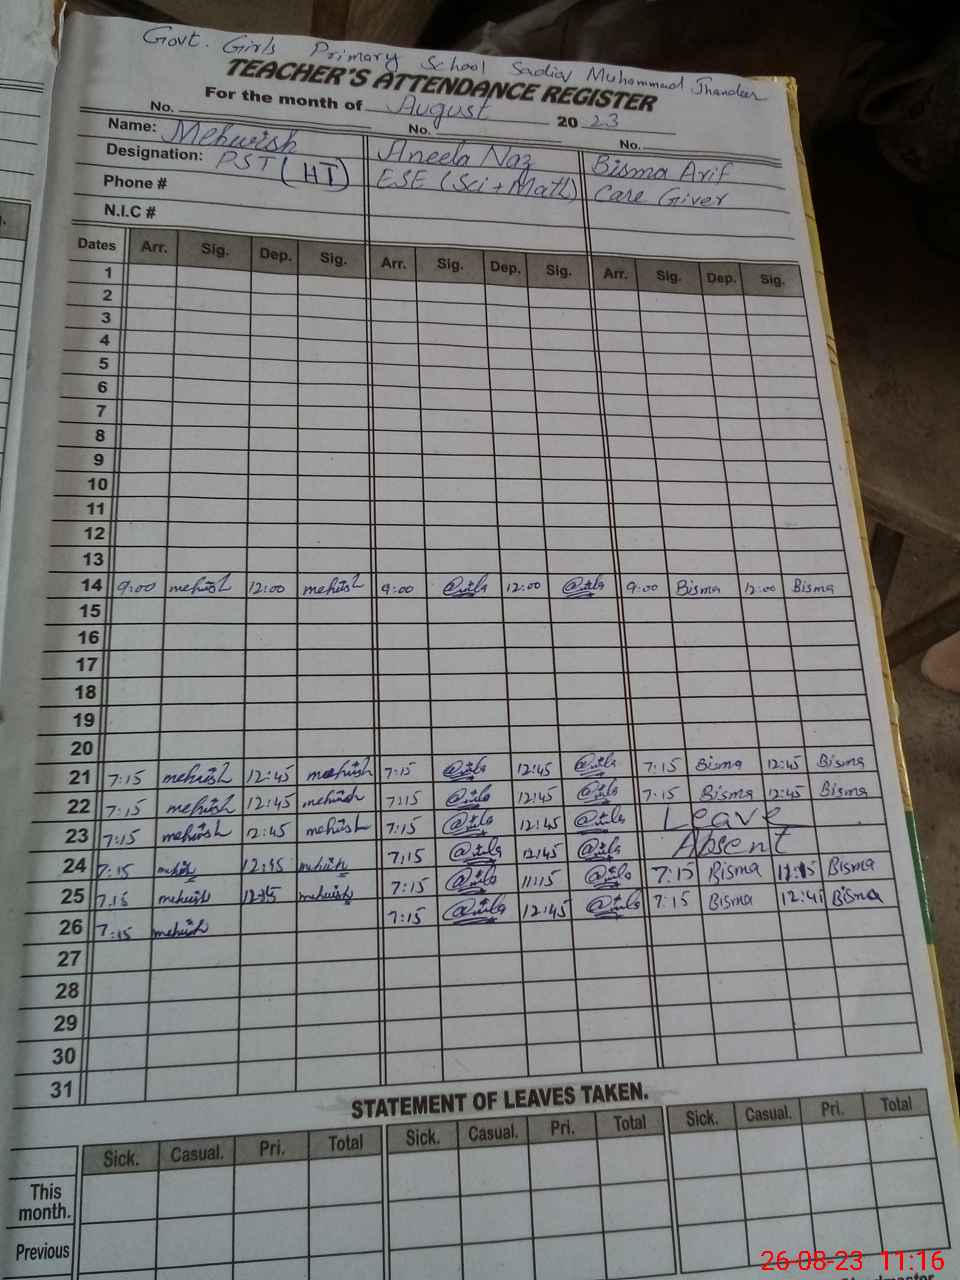 Govt. Girls Primary School Sadiq Muhammad Jhandeer
TEACHER'S ATTENDANCE REGISTER
For the month of August 2023
No. No. No.
Name: Mehwish Aneela Naz Bisma Arif
Designation: PST (HT) ESE (Sci + Math) Care Giver
Phone #
N.I.C #
Dates Arr. Sig. Dep. Sig. Arr. Sig. Dep. Sig. Arr. Sig. Dep. Sig.
1
2
3
4
5
6
7
8
9
10
11
12
13
14 9:00 mehwish 12:00 mehwish 9:00 12:00 9:00 Bisma 12:00 Bisma
15
16
17
18
19
20
21 7:15 mehwish 12:45 mehwish 7:15 12:45 7:15 Bisma 12:45 Bisma
22 7:15 mehwish 12:45 mehwish 7:15 12:45 7:15 Bisma 12:45 Bisma
23 7:15 mehwish 12:45 mehwish 7:15 12:45 Leave
24 7:15 mehwish 12:45 mehwish 7:15 12:45 Absent
25 7:15 mehwish mehwish 7:15 11:15 7:15 Bisma Bisma
26 7:15 mehwish 7:15 12:45 7:15 Bisma Bisma
27
28
29
30
31
STATEMENT OF LEAVES TAKEN.
Sick. Casual. Pri. Total Sick. Casual. Pri. Total Sick. Casual. Pri. Total
This
month.
Previous
26-08-23 11:16